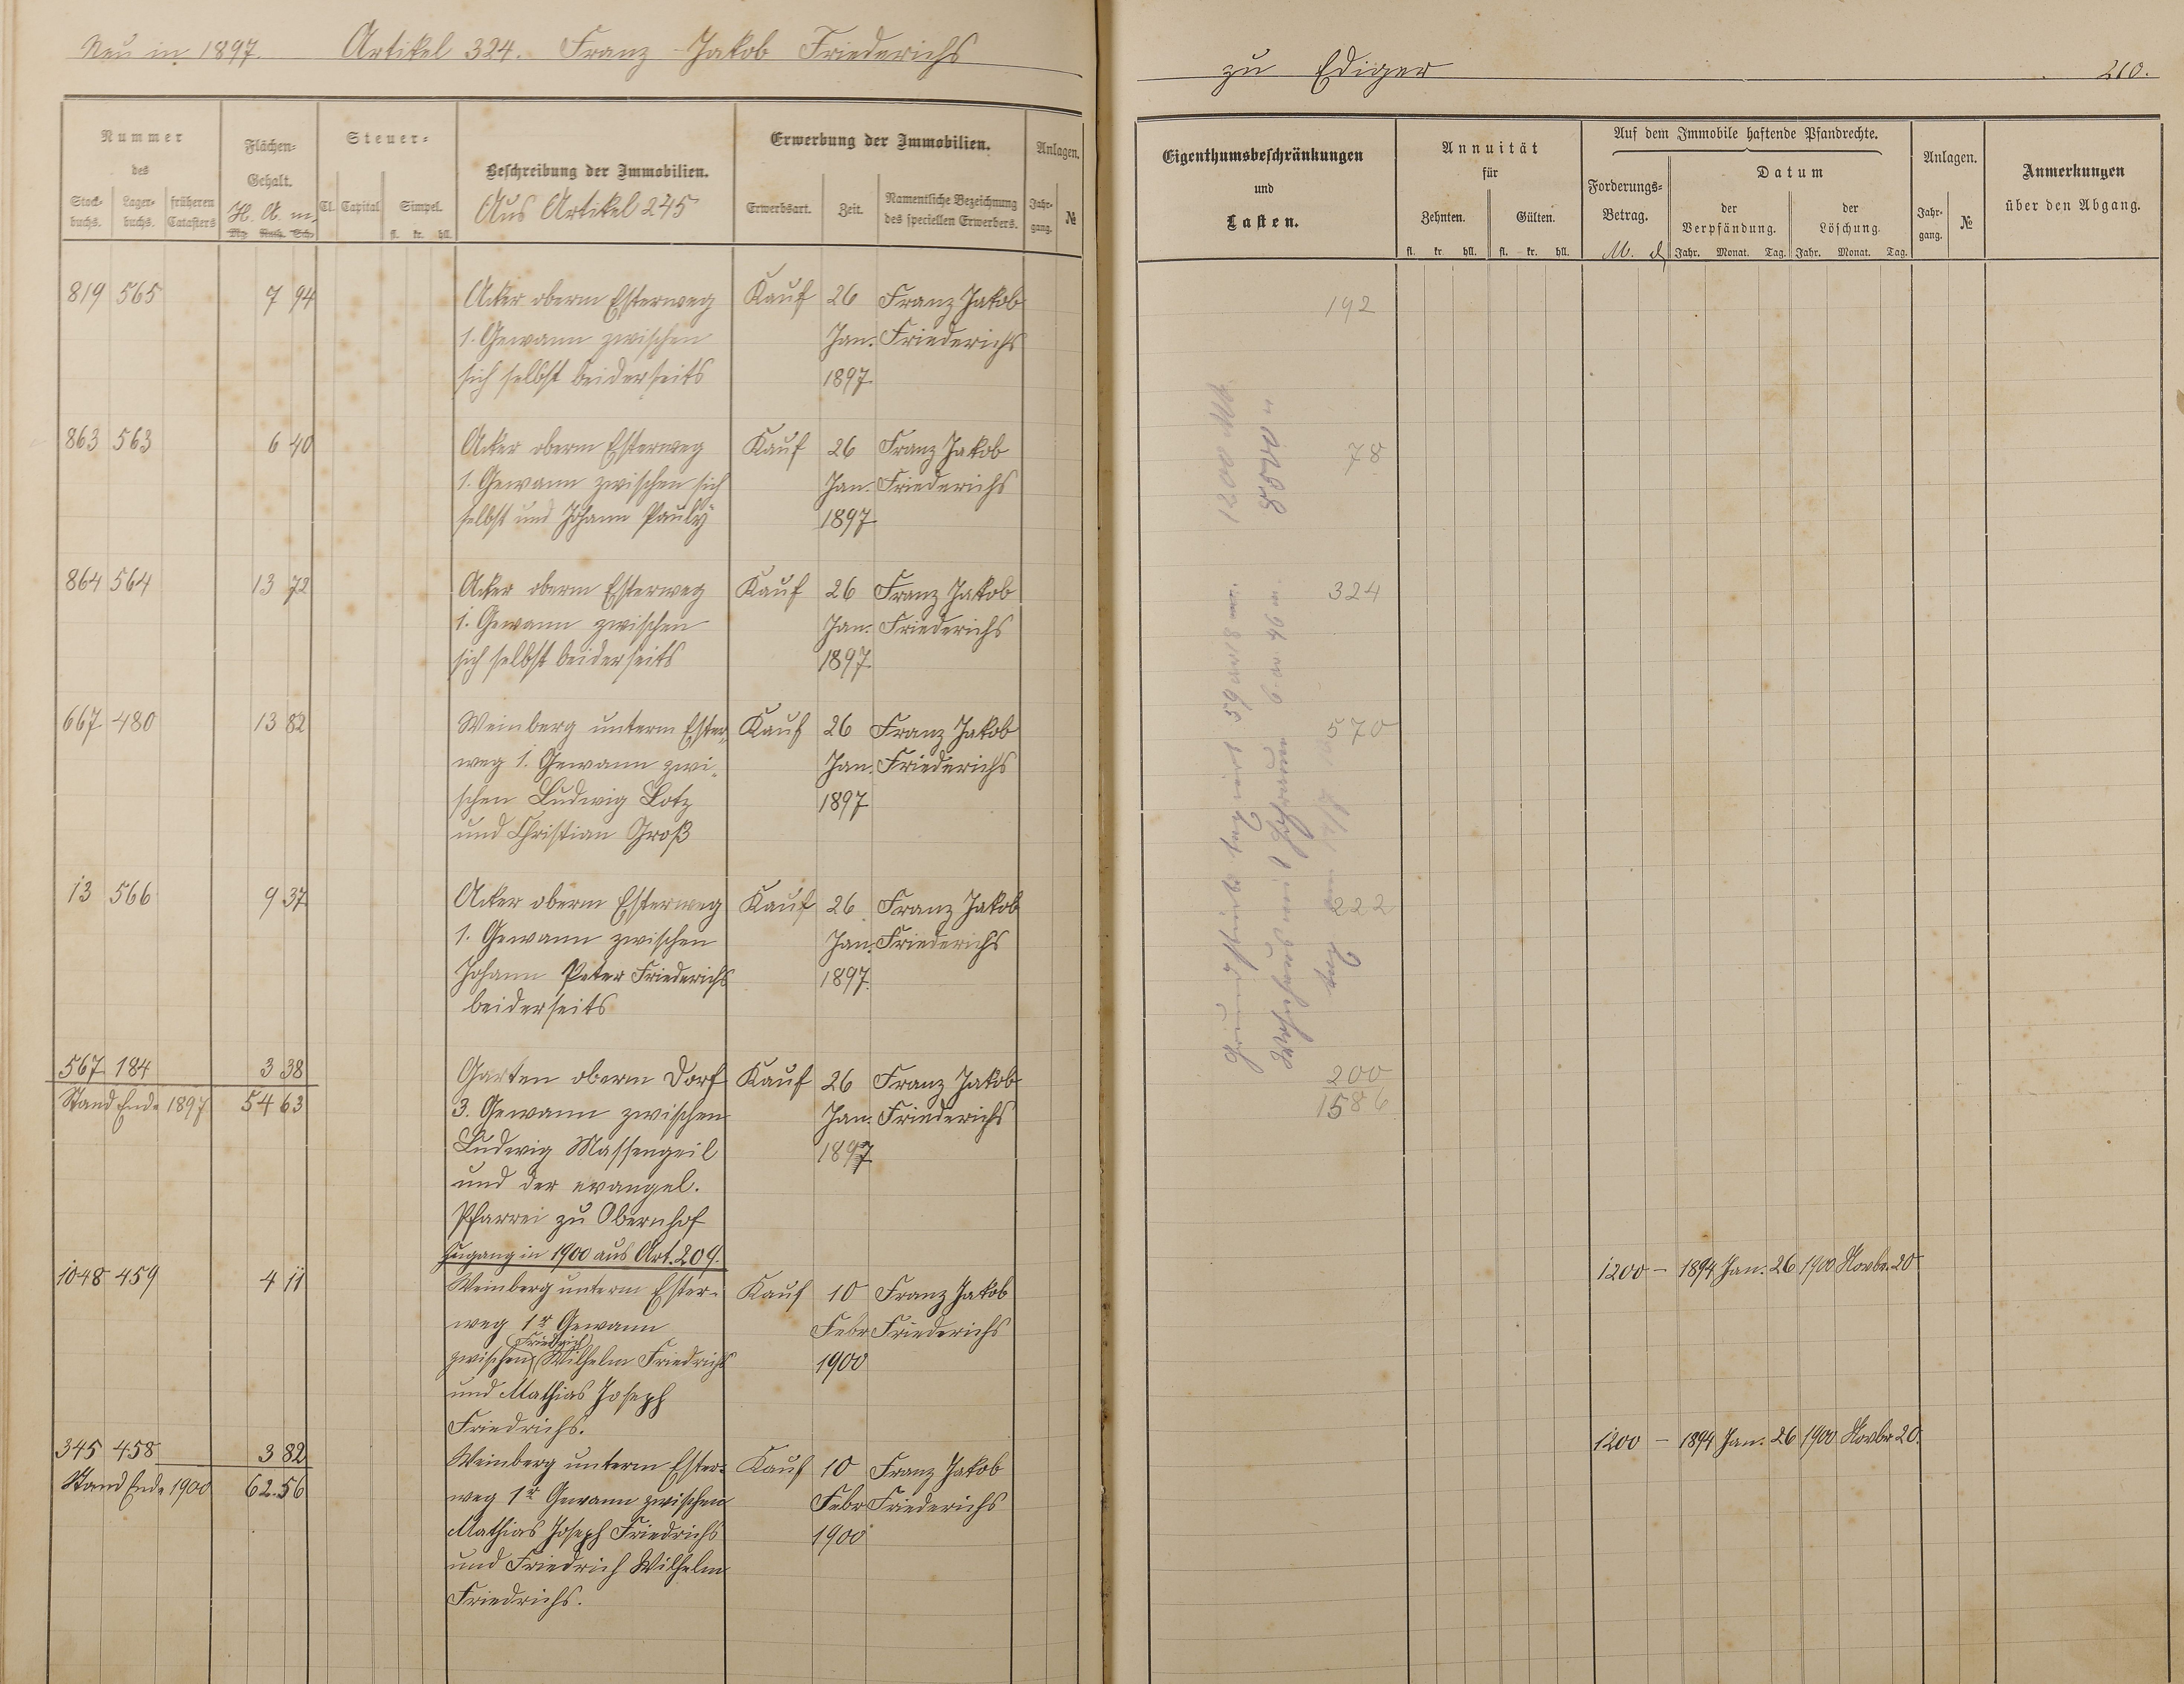 Neu in 1897. Artikel 324. Franz Jakob Friederichs
zu Ediger 210.
Nummer
des
Stock-
buchs.
Lager-
buchs.
früheren
Catasters
Flächen-
Gehalt.
H. A. m.
Mg. Ruth. Sch.
Steuer-
Cl. Capital Simpel.
fl. kr. hll.
Beschreibung der Immobilien.
Aus Artikel 245
Erwerbung der Immobilien.
Erwerbsart. Zeit.
Namentliche Bezeichnung
des speciellen Erwerbers.
Anlagen.
Jahr-
gang.
№
Eigenthumsbeschränkungen
und
Lasten.
Annuität
für
Zehnten. Gülten.
fl. kr. hll. fl. kr. hll.
Auf dem Immobile haftende Pfandrechte.
Forderungs-
Betrag.
M. d
Datum
der
Verpfändung.
der
Löschung.
Jahr. Monat. Tag. Jahr. Monat. Tag.
Anlagen.
Jahr-
gang.
№
Anmerkungen
über den Abgang.
819 565 7 94 Acker oberm Esterweg Kauf 26 Franz Jakob 192
1. Gewann zwischen Jan. Friederichs
sich selbst beiderseits 1897.
863 563 6 40 Acker oberm Esterweg Kauf 26 Franz Jakob 78
1. Gewann zwischen sich Jan. Friederichs
selbst und Johann Pauly 1897
864 564 13 72 Acker oberm Esterweg Kauf 26 Franz Jakob 324
1. Gewann zwischen Jan. Friederichs
sich selbst beiderseits 1897.
667 480 13 82 Weinberg unterm Ester- Kauf 26 Franz Jakob 570
weg 1. Gewann zwi- Jan. Friederichs
schen Ludwig Lotz 1897
und Christian Groß
13 566 9 37 Acker oberm Esterweg Kauf 26 Franz Jakob 222
1. Gewann zwischen Jan. Friederichs
Johann Peter Friederichs 1897.
beiderseits
567 184 3 38 Garten oberm Dorf Kauf 26 Franz Jakob 200
Stand Ende 1897 54 63 3. Gewann zwischen Jan. Friederichs 1586
Ludwig Massengeil 1897
und der evangel.
Pfarrei zu Obernhof
Zugang in 1900 aus Art. 209.
1048 459 4 11 Weinberg unterm Ester- Kauf 10 Franz Jakob 1200 - 1894 Jan. 26 1900 Novbr. 20
weg 1r Gewann Febr Friederichs
(Friedrich)
zwischen Wilhelm Friedrichs 1900
und Mathias Joseph
Friedrichs.
345 458 3 82 Weinberg unterm Ester- Kauf 10 Franz Jakob 1200 - 1894 Jan. 26 1900 Novbr 20.
Stand Ende 1900 62.56 weg 1r Gewann zwischen Febr Friederichs
Mathias Joseph Friedrichs 1900
und Friedrich Wilhelm
Friedrichs.
Grundstück taxiert 59 ar 18 m. 1200 Mk
Wohnhaus mit Hofraum 6 ar. 46 m. 8500 "